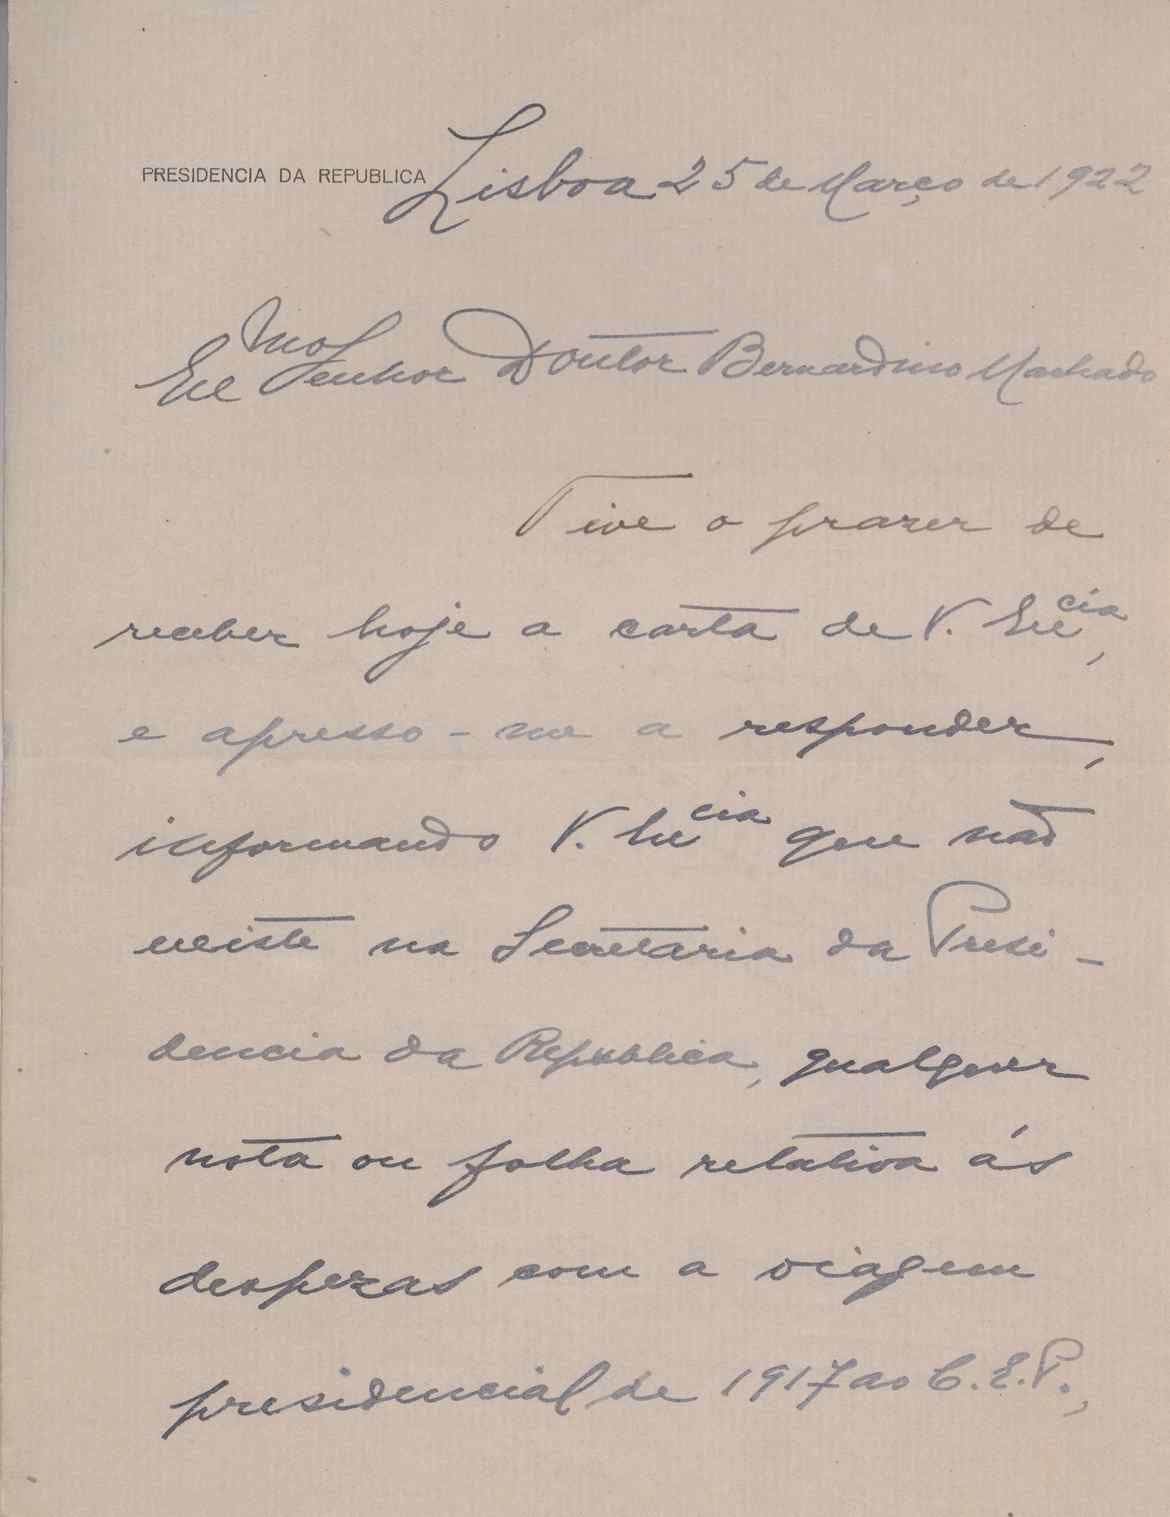 PRESIDENCIA DA REPUBLICA Lisboa 25 de Março de 1922
Exmo Senhor Doutor Bernardino Machado
Tive o prazer de
receber hoje a carta de V. Excia,
e apresso-me a responder,
informando V. Excia que não
existe na Secretaria da Presi-
dencia da Republica, qualquer
nota ou folha relativa ás
despezas com a viagem
presidencial de 1917 ao C. E. P.,